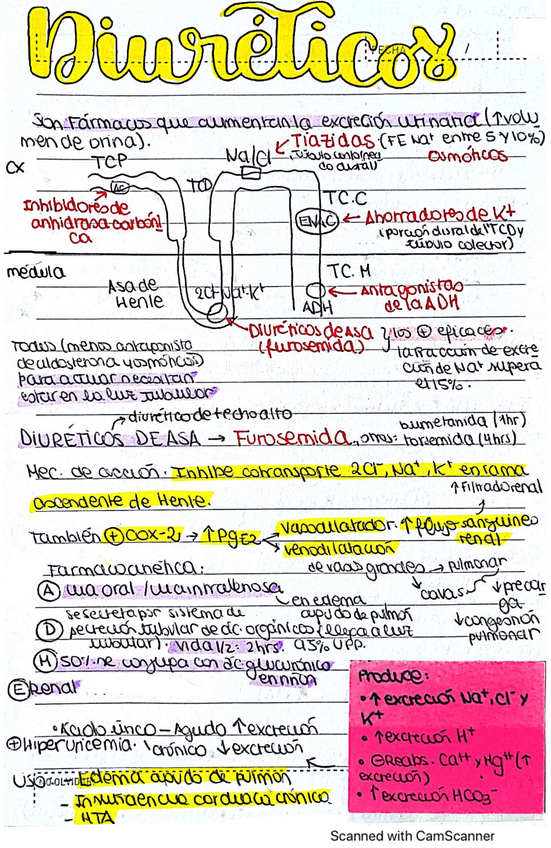 Diuréticos
FECHA / /
Son Fármacos que aumentan la excreción urinaria (↑volu
men de orina).
Tiazidas (FE Na⁺ entre 5 y 10%)
Na/Cl
Osmóticos
TCP
Cx
AC
TCD
Inhibidores de
anhidrasa carbóni
ca
T.C.C
ENAC
Ahorradores de K⁺
(porción distal del TCD y
túbulo colector)
médula
T.C.M
Asa de
Henle
2Cl⁻Na⁺K⁺
ADH
Antagonistas
de la ADH
Diuréticos de Asa
(furosemida)
los ⊕ eficaces.
la fracción de excre
ción de Na⁺ supera
el 15%.
Todos (menos antagonista
de aldosterona y osmóticos)
para actuar necesitan
estar en la luz tubular
diurético de techo alto
DIURÉTICOS DE ASA → Furosemida, otros:
bumetanida (1hr)
torsemida (4hrs)
Mec. de acción. Inhibe cotransporte 2Cl⁻, Na⁺, K⁺ en rama
ascendente de Henle.
↑Filtrado renal
También ⊕ COX-2 → ↑PgE2
vasodilatador. ↑flujo sanguíneo
renal
venodilatación
de vasos grandes → pulmonar
cavas
↓precar
ga
↓congestión
pulmonar
Farmacocinética:
A vía oral / via intravenosa
en edema
agudo de pulmón
D se secreta por sistema de
secreción tubular de ác. orgánicos (llega a luz
tubular). Vida 1/2: 2hrs. 95% UPP.
M 50% se conjuga con ác. glucurónico
en riñón
E Renal
• Ácido úrico – Agudo ↑excreción
crónico ↓excreción
⊕ Hiperuricemia.
Usos: Edema agudo de pulmón
- Insuficiencia cardíaca crónica
- HTA
Produce:
• ↑excreción Na⁺, Cl⁻ y
K⁺
• ↑excreción H⁺
• ⊖Reabs. Ca⁺⁺ y Mg⁺⁺ (↑
excreción)
• ↑excreción HCO₃⁻
Scanned with CamScanner